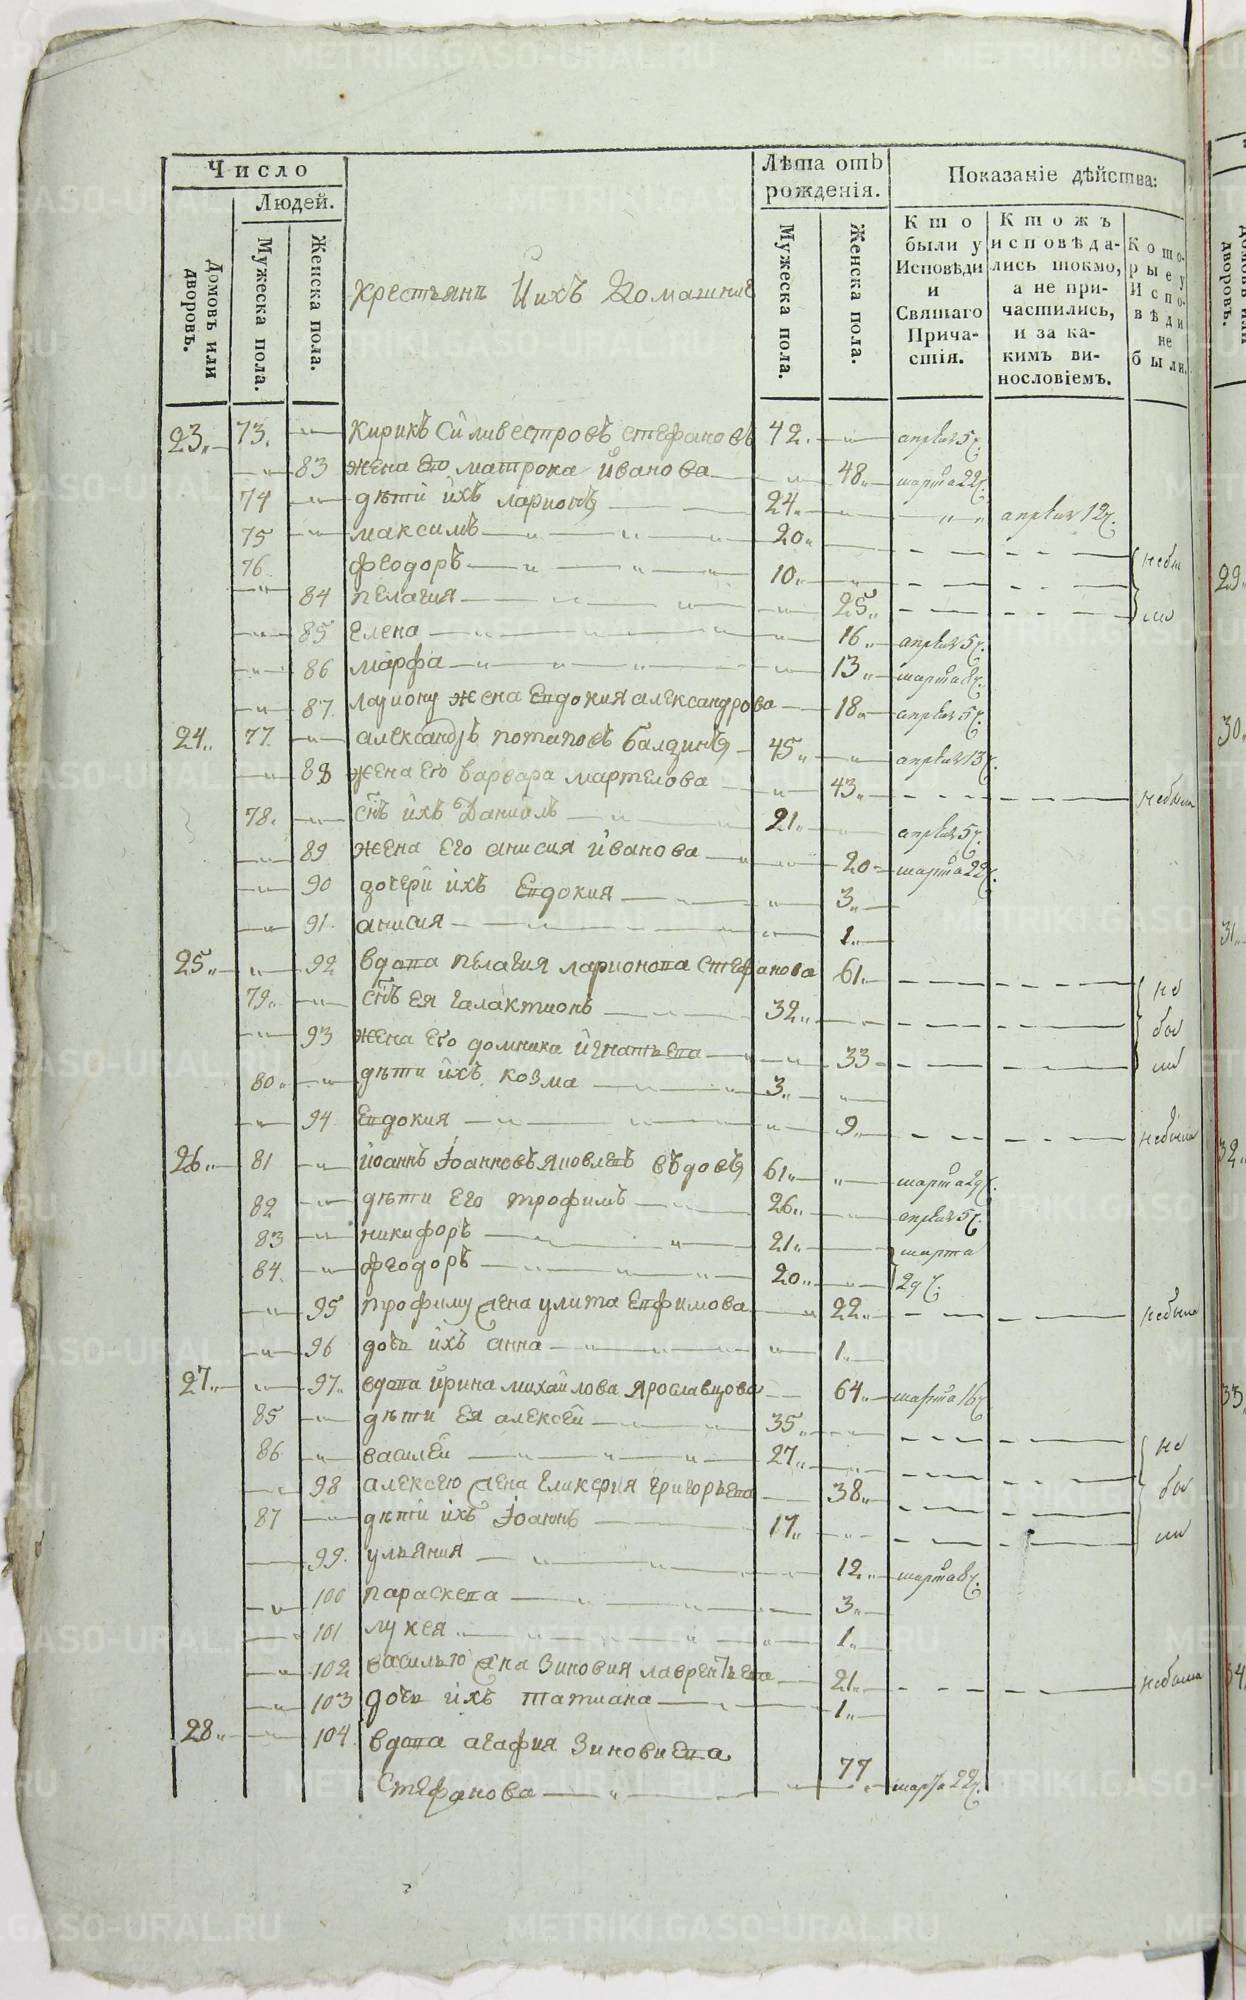 Число
Людей.
Домовъ или дворовъ.
Мужеска пола.
Женска пола.
Крестьянъ Ихъ Домашние
Лѣта отъ рожденія.
Мужеска пола.
Женска пола.
Показаніе дѣйства:
Кто были у Исповѣди и Святаго Причастія.
Ктожъ исповѣдались токмо, а не причастились, и за какимъ винословіемъ.
Которые у Исповѣди не были.
23 73. Кирикъ Силивестровъ Стефановъ 42. апреля 5ч.
83 жена Его матрона Иванова 48 марта 22ч.
74 дѣти ихъ ларионъ 24 апреля 12ч.
75 максимъ 20 небы
76 феодоръ 10
84 пелагия 25 ли
85 Елена 16 апреля 5ч.
86 марфа 13 марта 8ч.
87. лариону жена Евдокия александрова 18 апреля 5ч.
24 77 александръ потаповъ балдинъ 45 апреля 13ч.
88 жена Его варвара мартемова 43 небыла
78 снъ ихъ Даниилъ 21 апреля 5ч.
89 жена Его анисия Иванова 20 марта 22ч.
90 дочери ихъ Евдокия 3
91 анисия 1
25 92 вдова пелагия ларионова Стефанова 61 не
79 снъ Ея галактионъ 32 бы
93 жена Его домника Игнатьева 33 ли
80 дѣти ихъ козма 3
94 Евдокия 9 небыла
26 81 Иоаннъ Иоанновъ Яковлевъ вдовъ 61 марта 29ч.
82 дѣти Его трофимъ 26 апреля 5ч.
83 никифоръ 21 марта
84 феодоръ 20 29ч.
95 трофиму жена улита Ефимова 22 небыла
96 дочь ихъ анна 1
27 97 вдова Ирина михайлова Ярославцова 64 марта 16ч
85 дѣти Ея алексей 35 не
86 василей 27
98 алексею жена гликерия григорьева 38 бы
87 дѣти ихъ Иоаннъ 17 ли
99 ульяния 12 марта 8ч.
100 параскева 3
101 лукея 1
102 василью жна Зиновия лаврентьева 21 небыла
103 дочь ихъ татиана 1
28 104 вдова агафия Зиновиева
Стефанова 77 марта 22ч.